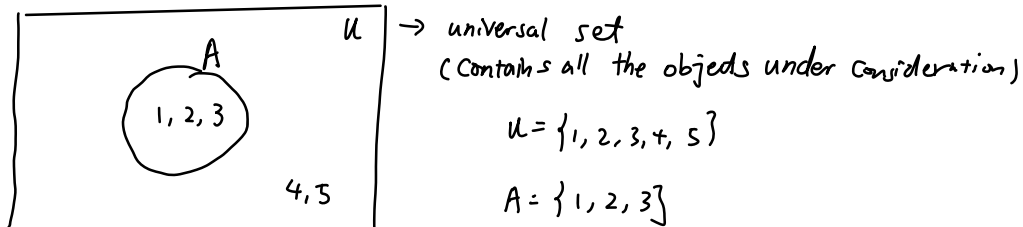 U → universal set
A
(Contains all the objects under consideration)
1, 2, 3
U = {1, 2, 3, 4, 5}
4, 5
A = {1, 2, 3}